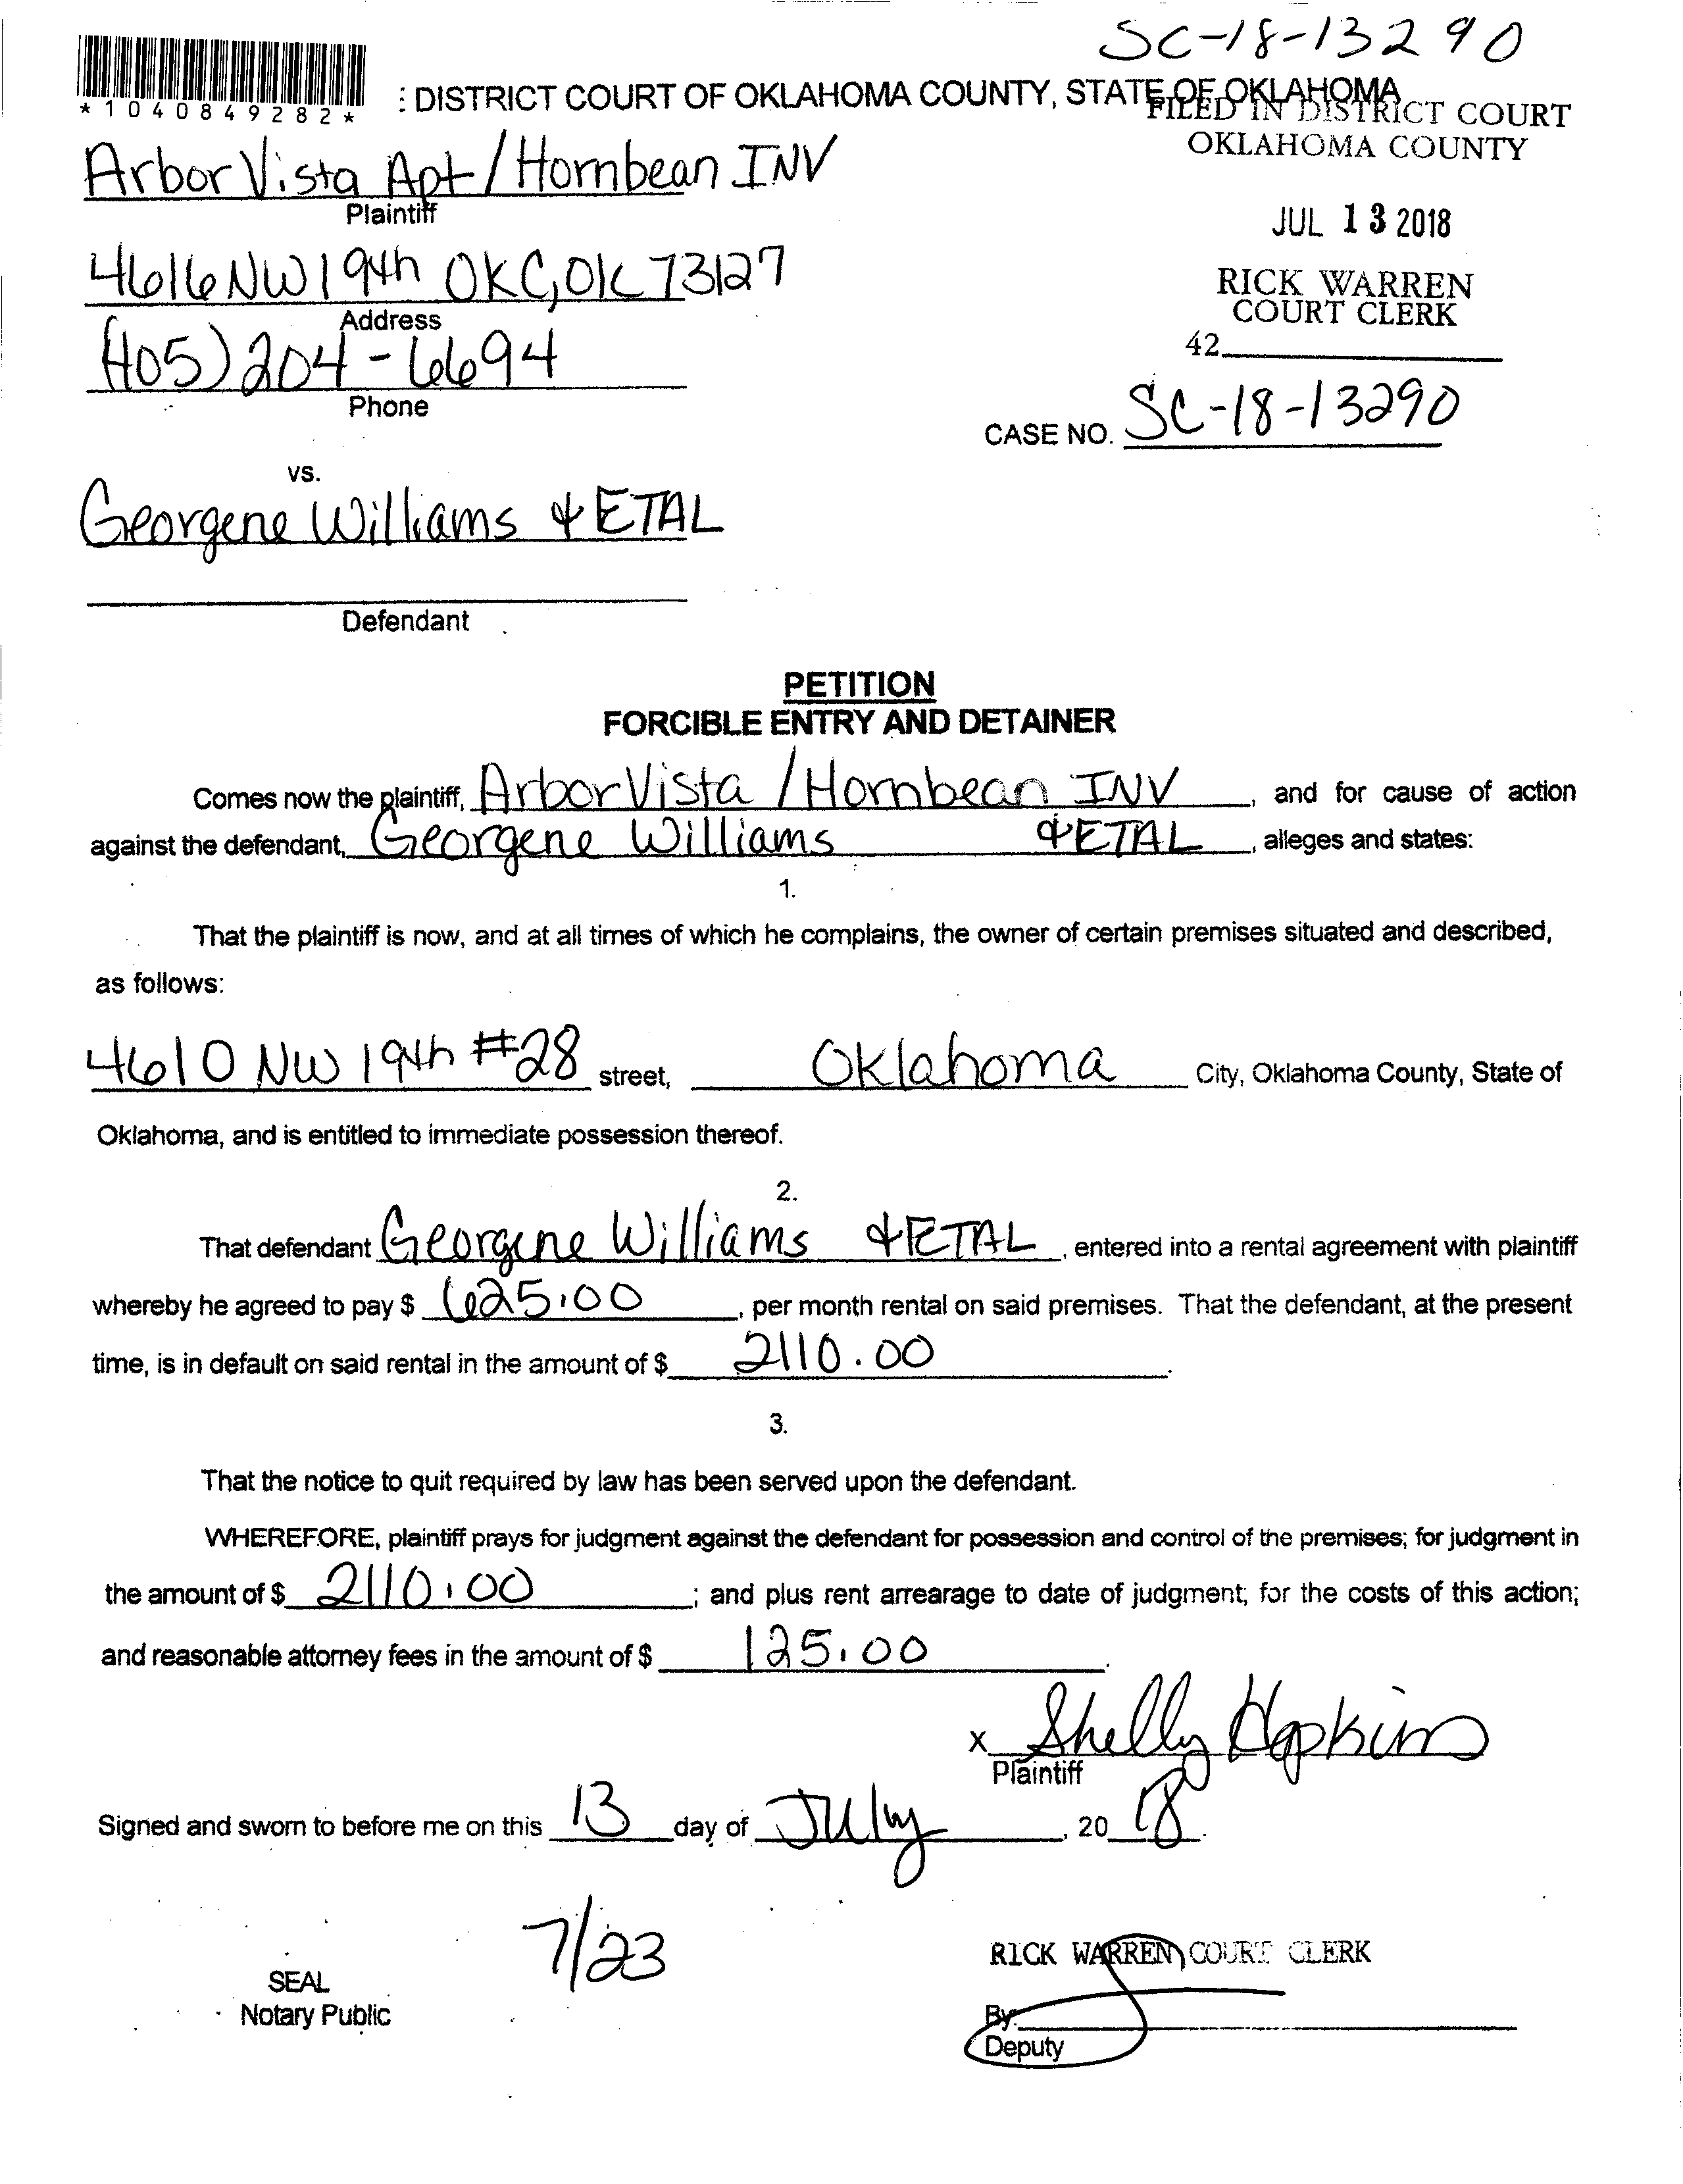 SC-18-13290
*1040849282*
: DISTRICT COURT OF OKLAHOMA COUNTY, STATE OF OKLAHOMA
FILED IN DISTRICT COURT
OKLAHOMA COUNTY
Arbor Vista Apt / Hornbean INV
Plaintiff
JUL 13 2018
4616 NW 19th OKC, OK 73127
Address
RICK WARREN
COURT CLERK
42
(405) 204-6694
Phone
CASE NO. SC-18-13290
vs.
Georgene Williams & ETAL
Defendant
PETITION
FORCIBLE ENTRY AND DETAINER
Comes now the plaintiff, Arbor Vista / Hornbean INV, and for cause of action
against the defendant, Georgene Williams & ETAL, alleges and states:
1.
That the plaintiff is now, and at all times of which he complains, the owner of certain premises situated and described,
as follows:
4610 NW 19th #28 street, Oklahoma City, Oklahoma County, State of
Oklahoma, and is entitled to immediate possession thereof.
2.
That defendant Georgene Williams & ETAL, entered into a rental agreement with plaintiff
whereby he agreed to pay $ 625.00, per month rental on said premises. That the defendant, at the present
time, is in default on said rental in the amount of $ 2110.00.
3.
That the notice to quit required by law has been served upon the defendant.
WHEREFORE, plaintiff prays for judgment against the defendant for possession and control of the premises; for judgment in
the amount of $ 2110.00; and plus rent arrearage to date of judgment; for the costs of this action;
and reasonable attorney fees in the amount of $ 125.00.
x Shelly Hopkins
Plaintiff
Signed and sworn to before me on this 13 day of July, 20 18.
7/23
RICK WARREN COURT CLERK
SEAL
Notary Public
By:
Deputy